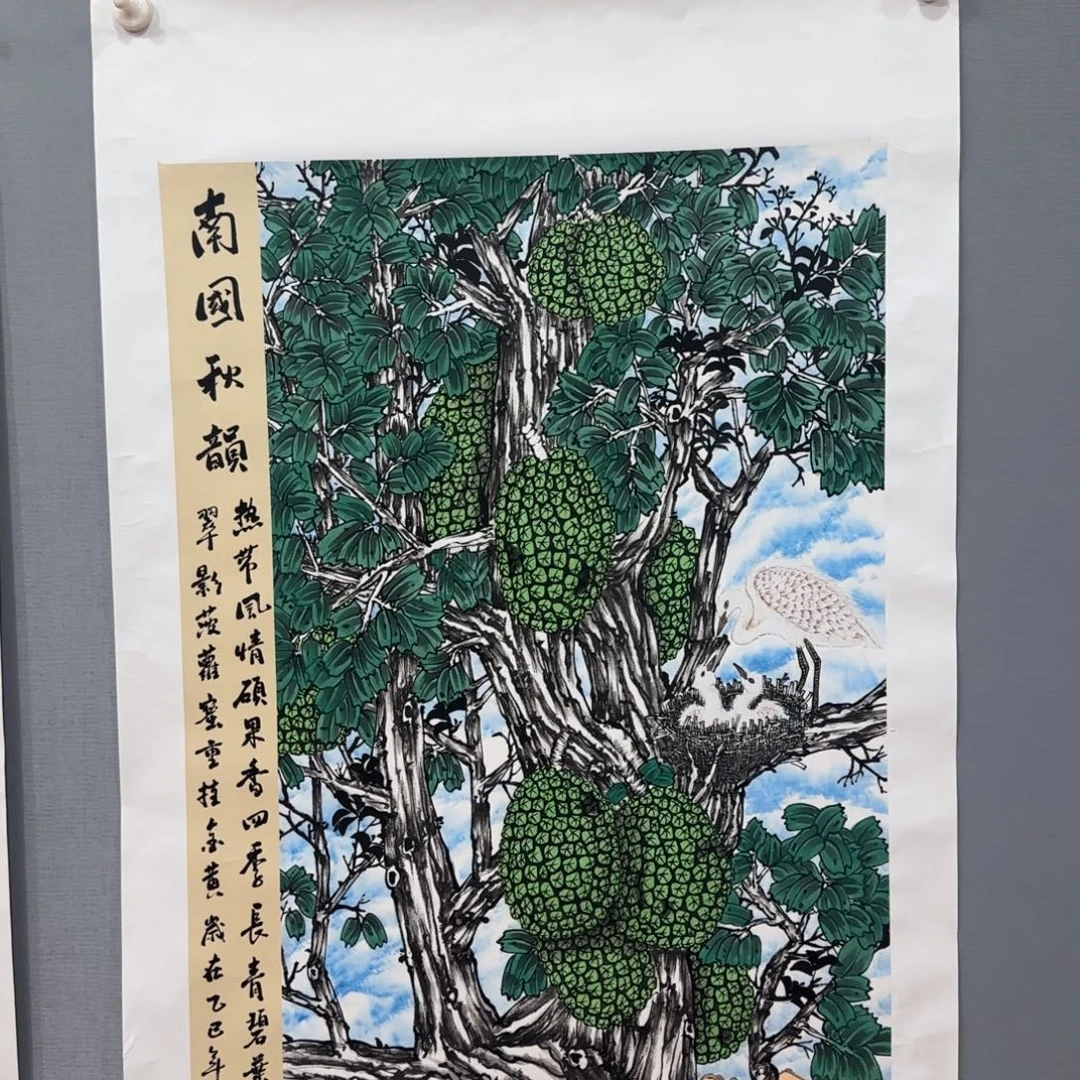 南國秋韻
熱带風情碩果香四季長青碧葉
翠影菠蘿蜜重挂金黄歲在乙巳年